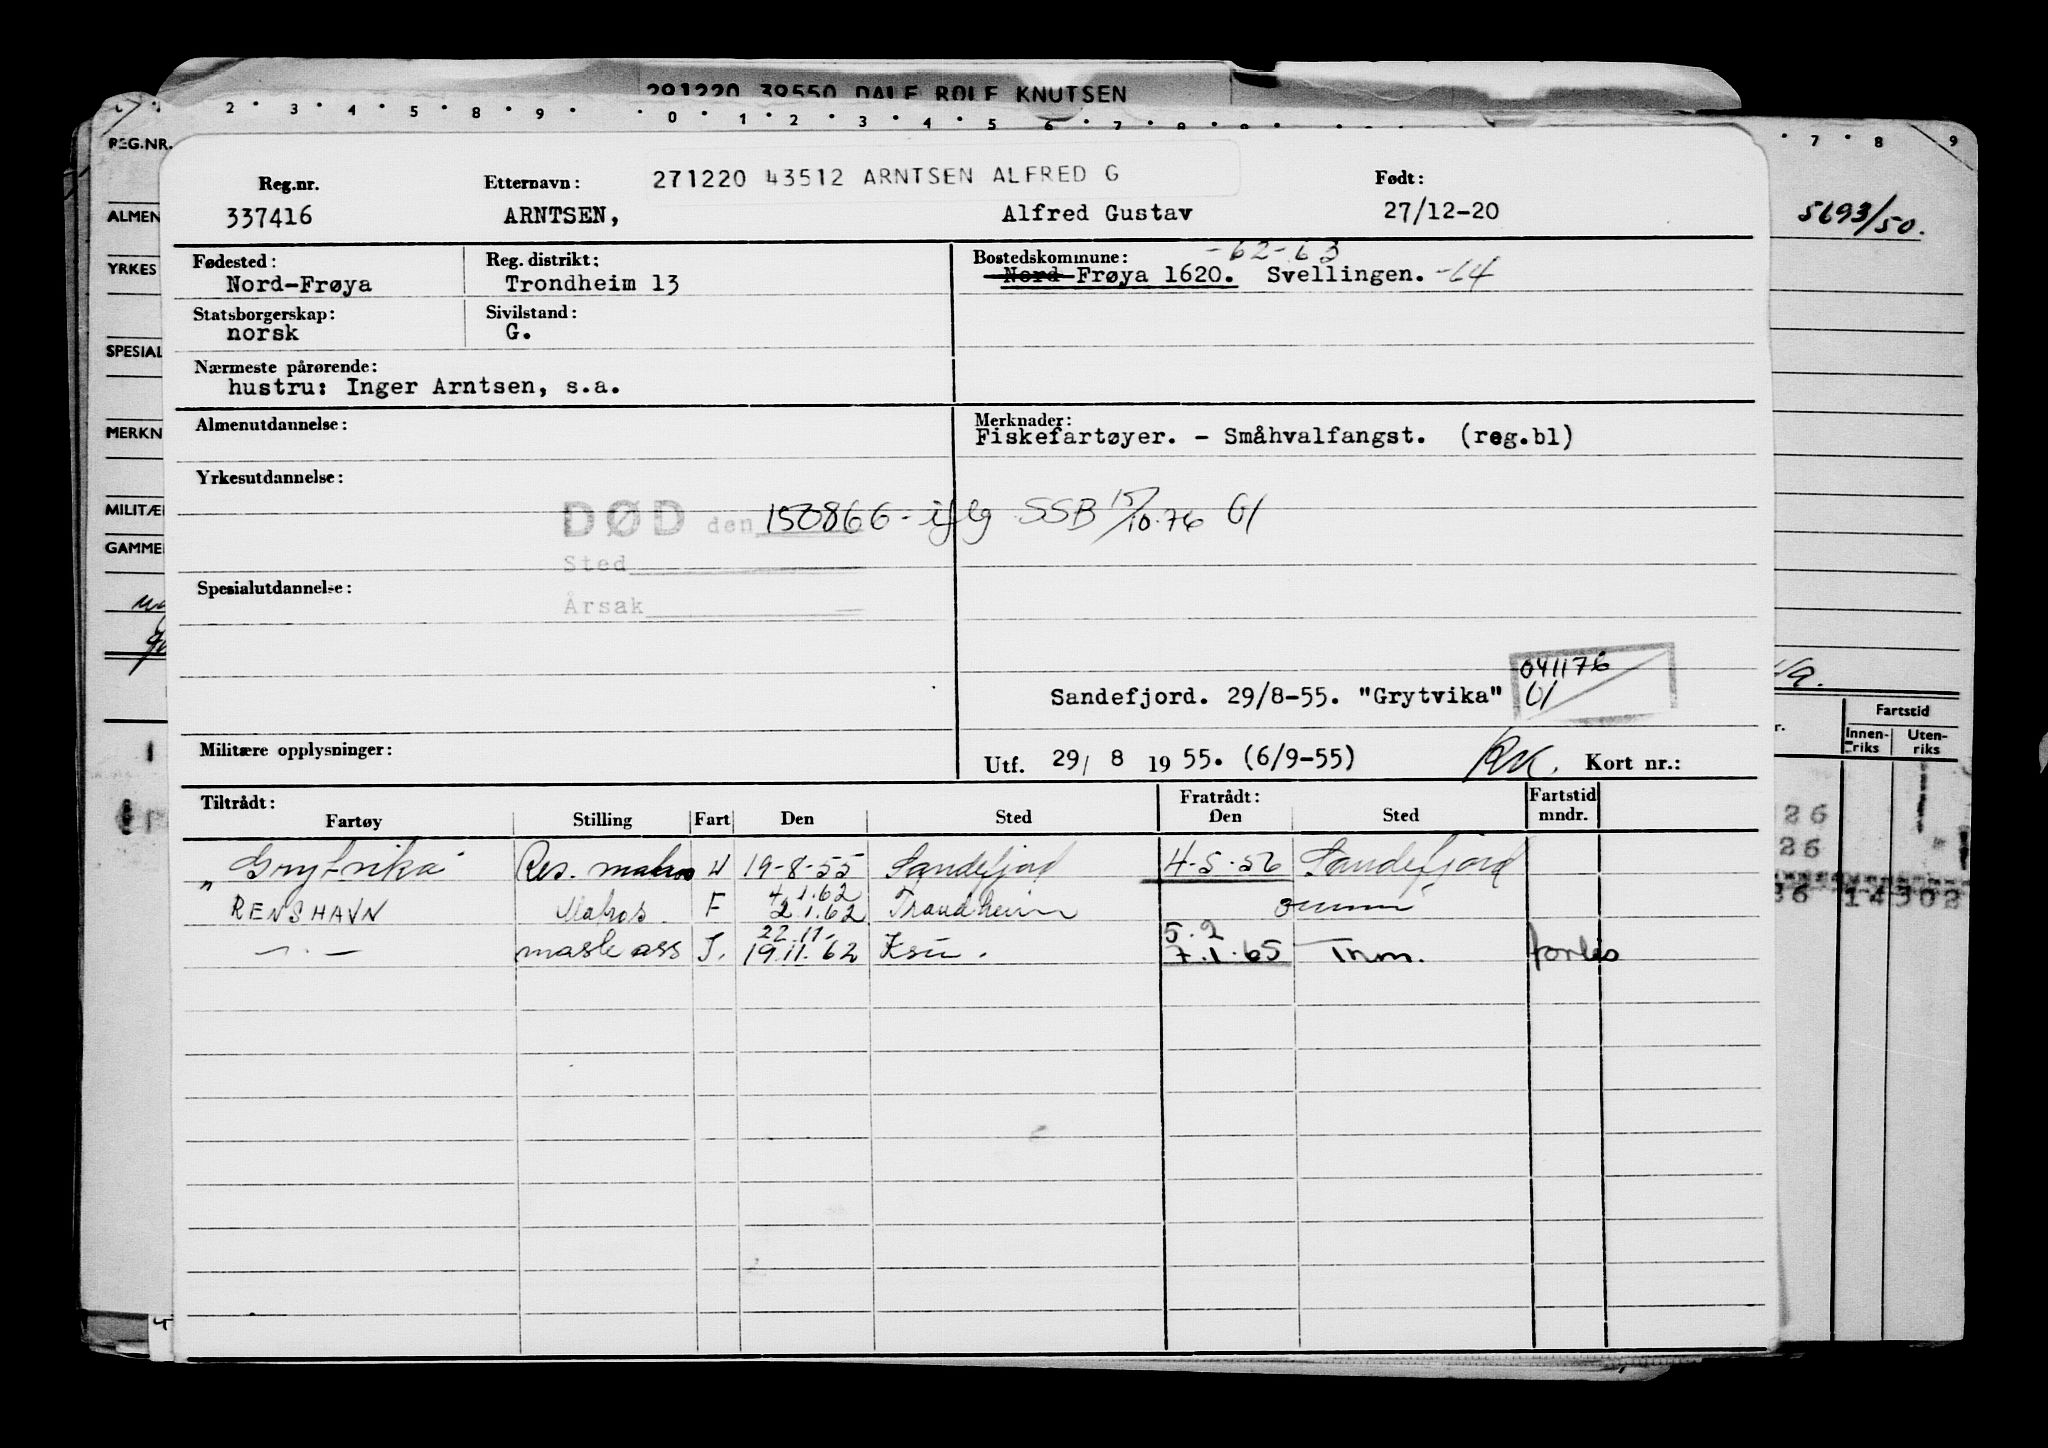 291220 39550 DALE ROLF KNUTSEN
2 3 4 5 8 9 0 1 2 3 4 5 6 7 8 9 7 8 9
REG.NR.
271220 43512 ARNTSEN ALFRED G
Reg.nr. Etternavn: Født:
337416 ARNTSEN, Alfred Gustav 27/12-20
ALMEN 5693/50.
-62-63
Fødested: Reg. distrikt: Bostedskommune:
YRKES
Nord-Frøya Trondheim 13 Nord Frøya 1620. Svellingen. -64
Statsborgerskap: Sivilstand:
norsk G.
SPESIAL
Nærmeste pårørende:
hustru: Inger Arntsen, s.a.
Almenutdannelse: Merknader:
MERKN Fiskefartøyer. - Småhvalfangst. (reg.bl)
Yrkesutdannelse:
MILITÆR
DØD den 150866 - iflg SSB 15/10.76 GI
GAMME
Sted
Spesialutdannelse:
Årsak
041176
GI
Sandefjord. 29/8-55. "Grytvika"
Militære opplysninger:
Utf. 29/ 8 1955. (6/9-55) Kort nr.:
Fartstid
Innen-riks Uten-riks
Tiltrådt: Fratrådt: Fartstid
Fartøy Stilling Fart Den Sted Den Sted mndr.
"Grytvika" Res. matros 19-8-55 Sandefjord 4-5-56 Sandefjord
4.1.62
RENSHAVN Matros F 2.1.62 Trondheim
22.11- 5.2
— . — mask ass J. 19.11.62 Ksu. 7.1.65 Trhm.
26
26
36 14302